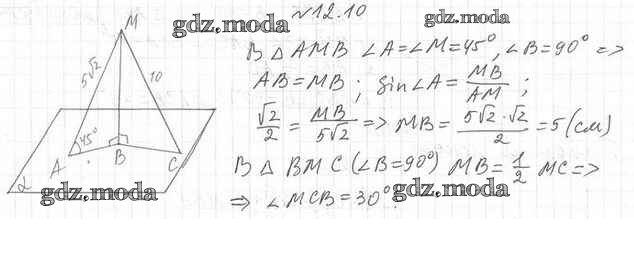 №12.10
gdz.moda
gdz.moda
M
5√2
10
45°
A
B
C
α
В △ AMB ∠A=∠M=45°, ∠B=90° =>
AB=MB ; sin∠A = MB/AM ;
√2/2 = MB/5√2 => MB = 5√2·√2/2 = 5 (см)
В △ BMC (∠B=90°) MB = 1/2 MC =>
=> ∠MCB=30°.
gdz.moda
gdz.moda